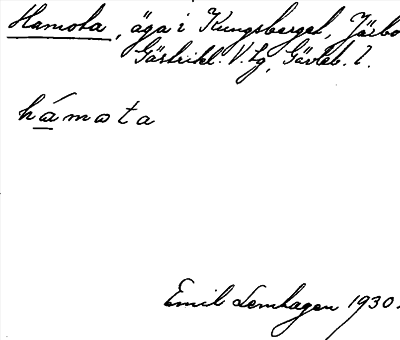 Hamota, äga i Kungsberget, Järbo
Gästrikl. V. tg, Gävleb. l.
hámωta
Emil Lernhagen 1930.